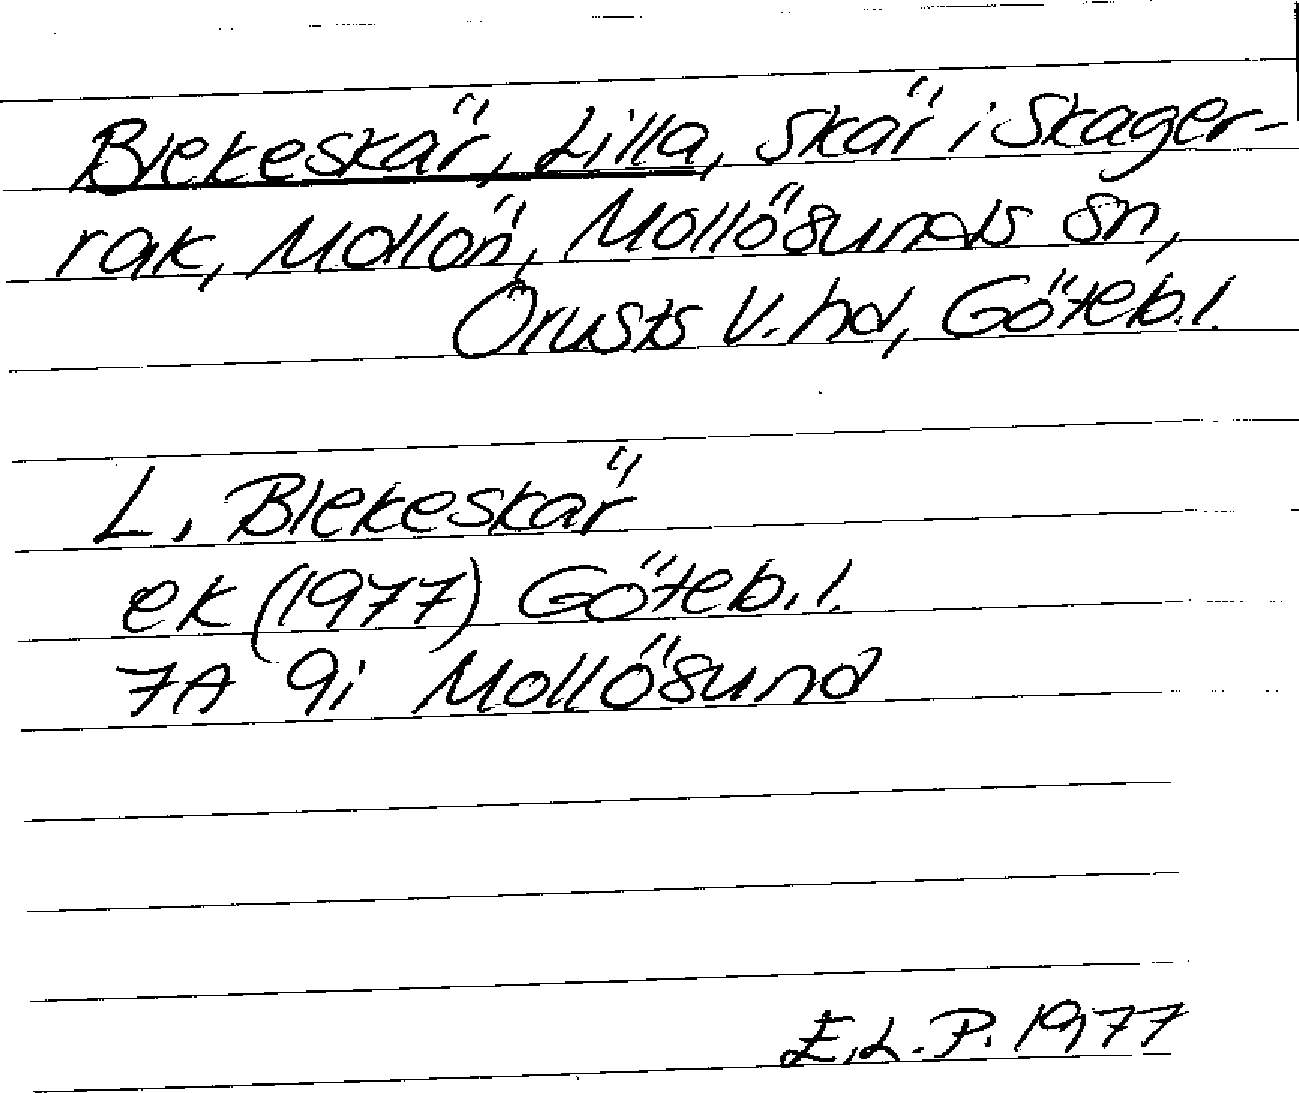 Blekeskär, Lilla, skär i Skager-
rak, Mollön, Mollösunds sn,
Orusts V. hd, Göteb. l.
L. Blekeskär
ek (1977) Göteb. l.
7A 9i Mollösund
E.L.P. 1977